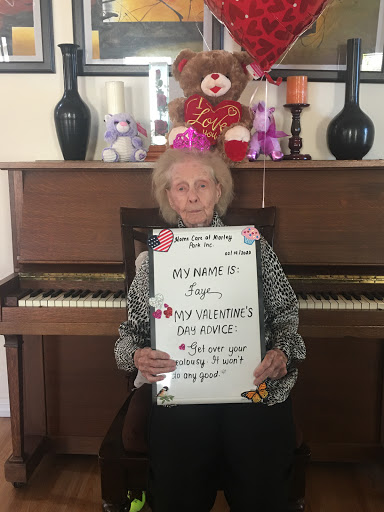 I
Love
you
Home Care at Morley
Park Inc.
MY NAME IS:
Faye
MY VALENTINE'S
DAY ADVICE:
Get over your
jealousy. It won't
do any good.